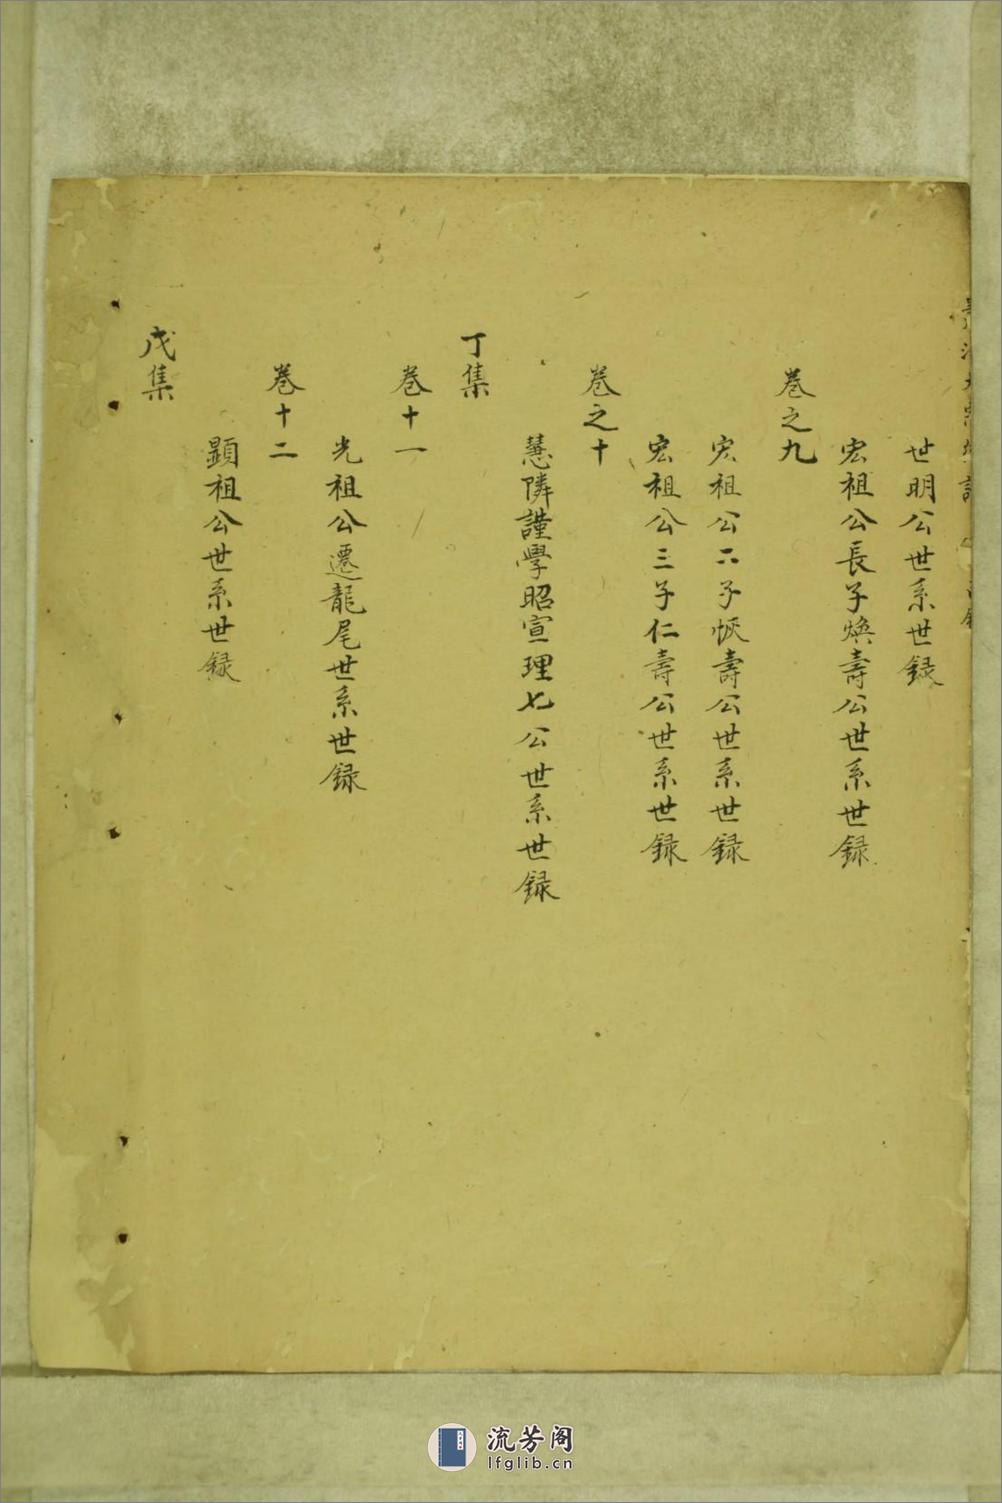 世明公世系世録
宏祖公長子煥壽公世系世録
卷之九
宏祖公二子恢壽公世系世録
宏祖公三子仁壽公世系世録
卷之十
慧隣謹學昭宣理七公世系世録
丁集
卷十一
光祖公遷龍尾世系世録
卷十二
顯祖公世系世録
戊集
流芳阁
lfglib.cn